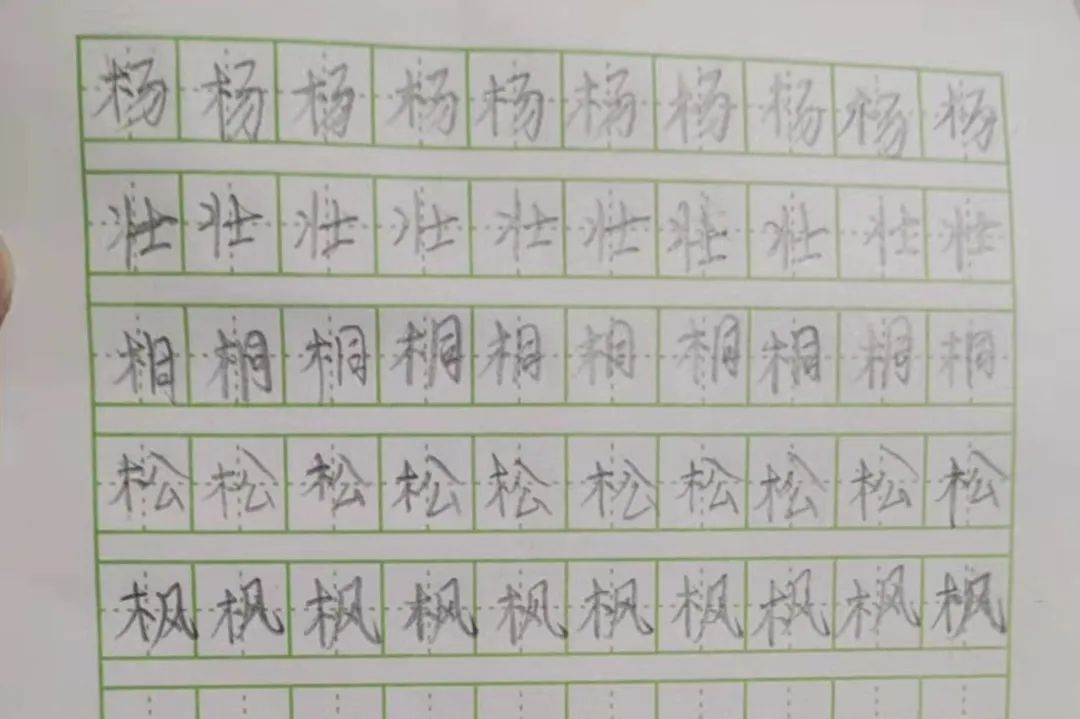 杨杨杨杨杨杨杨杨杨杨
壮壮壮壮壮壮壮壮壮壮
桐桐桐桐桐桐桐桐桐桐
松松松松松松松松松松
枫枫枫枫枫枫枫枫枫枫